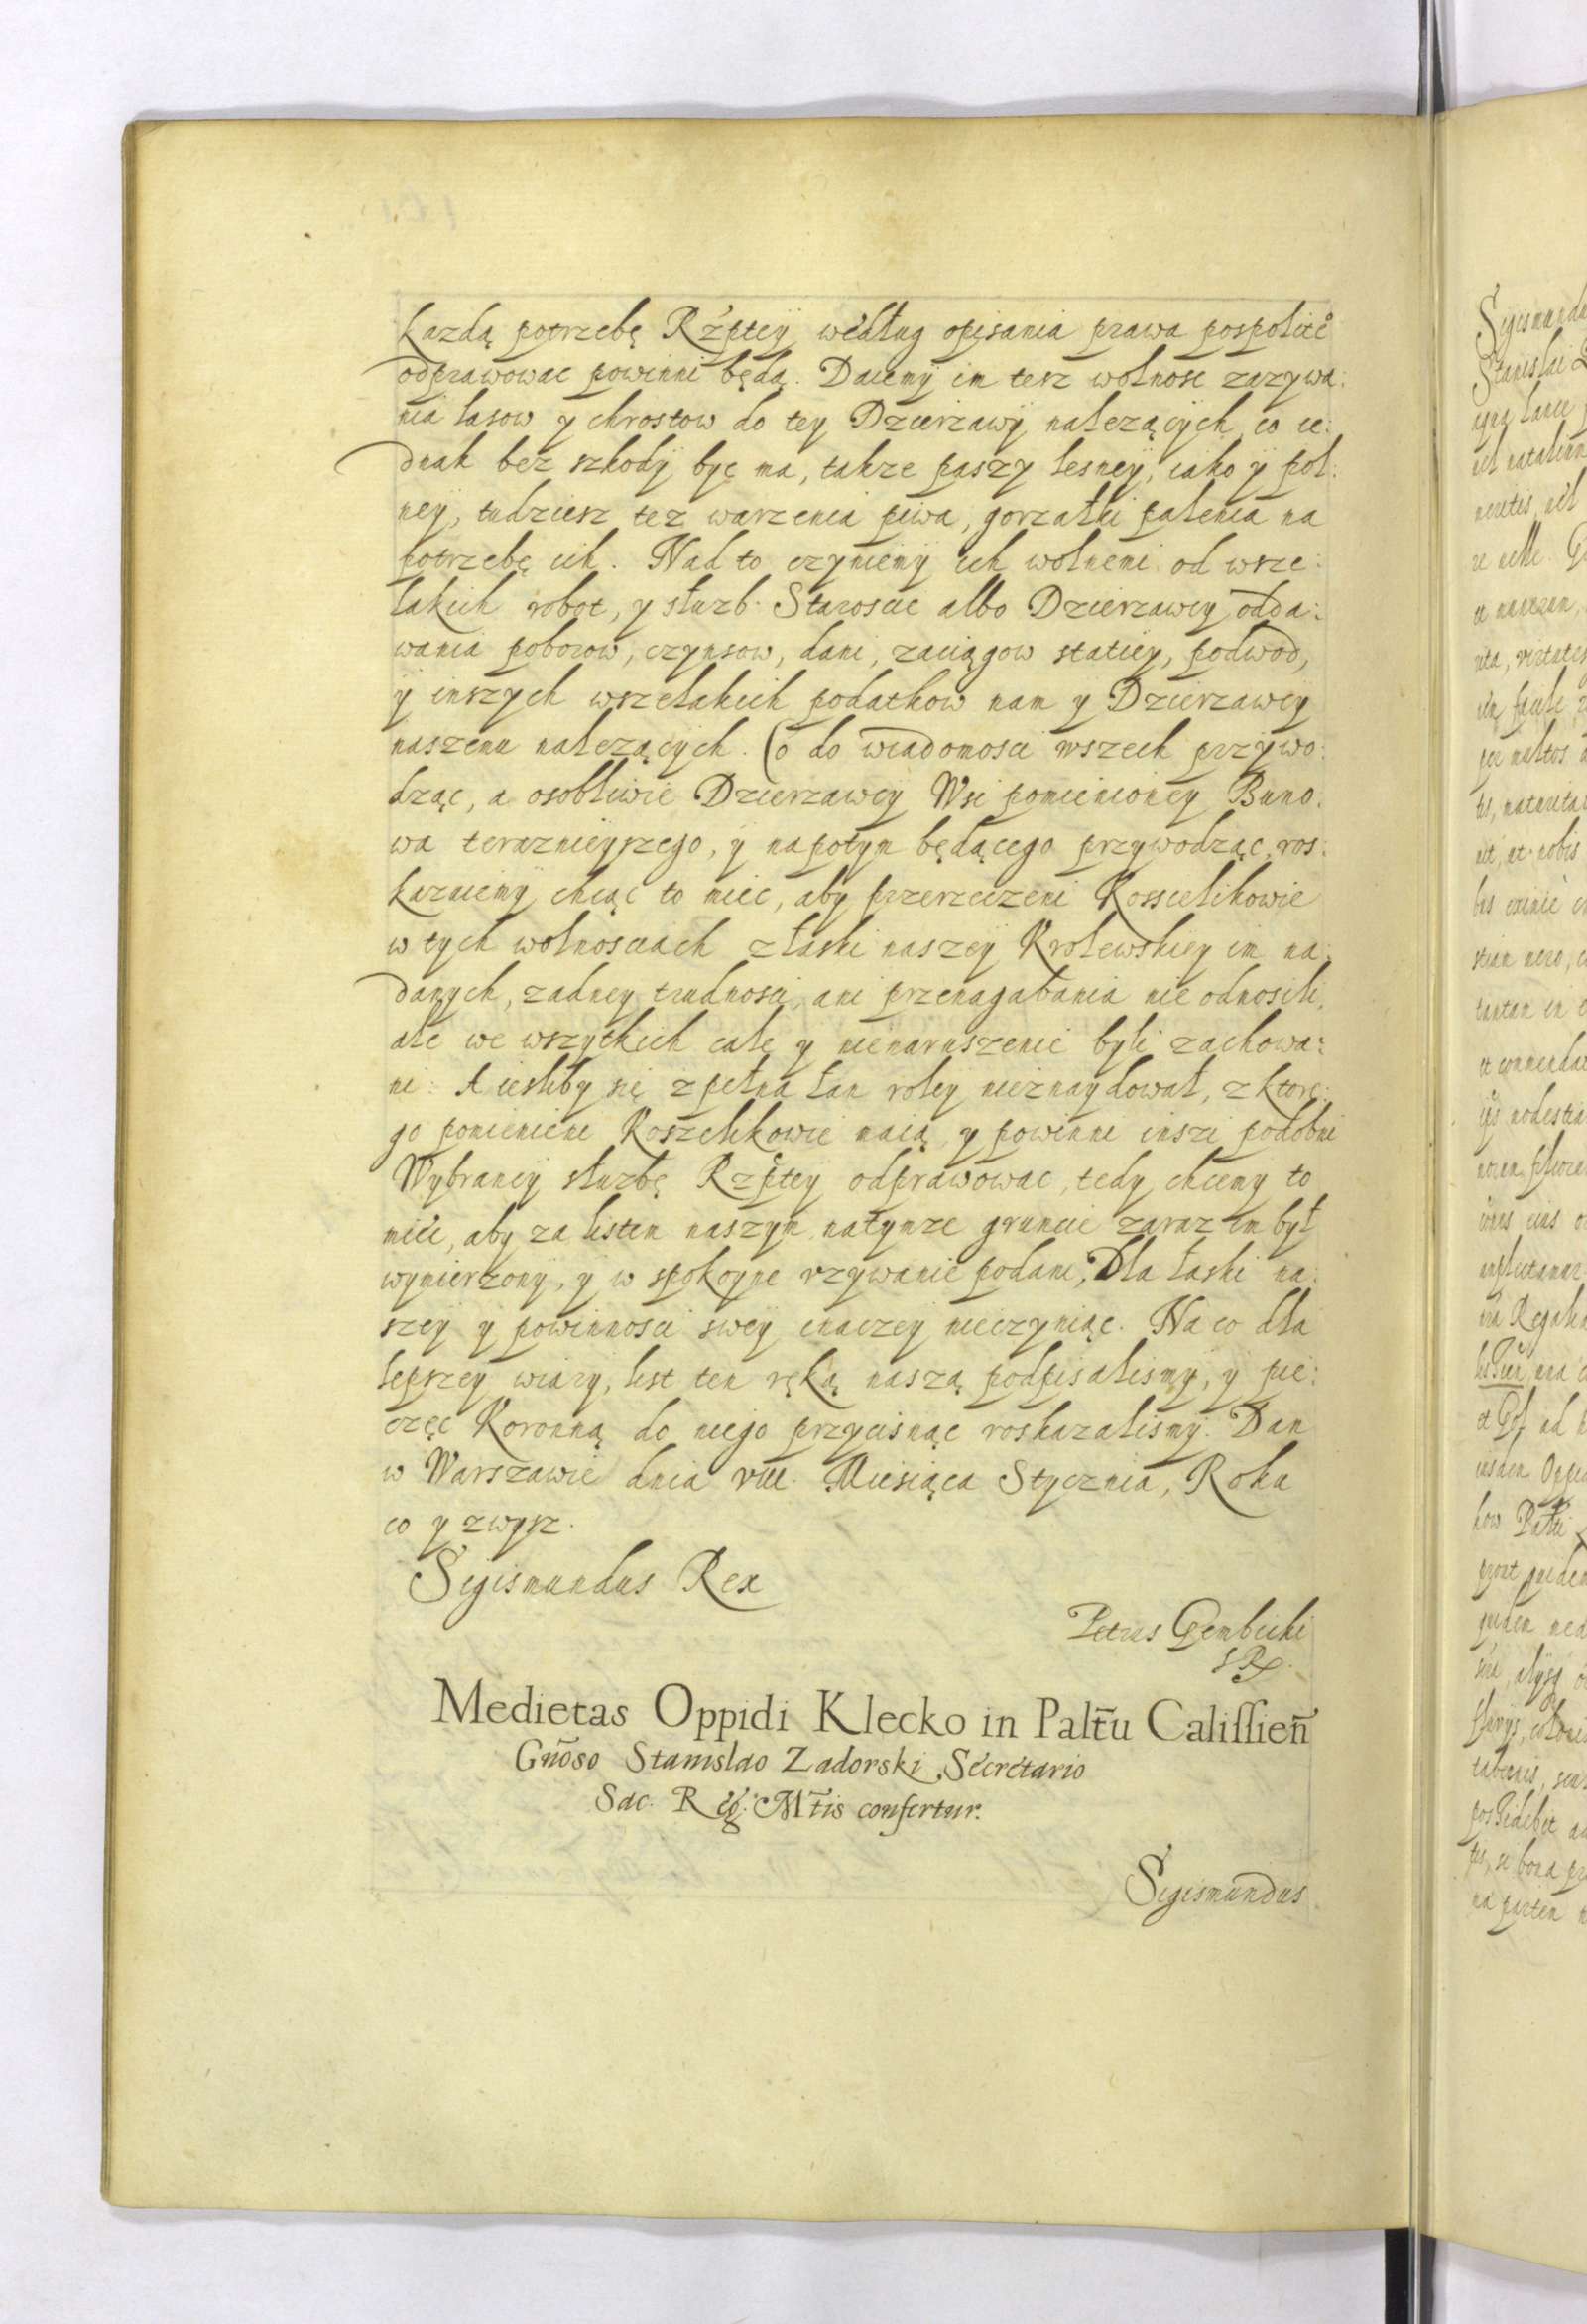 każdą potrzebę Rzptey według opisania prawa pospolite°
odprawowac powinni będą. Daiemy im tesz wolnosc zazywa:
nia lasow y chrostow do tey Dzierzawy nalezących, co ie:
dnak bez szkody byc ma, takze paszy lesney, iako y pol:
ney, tudziesz tez warzenia piwa, gorzałki palenia na
potrzebę ich. Nad to czyniemy ich wolnemi od wsze:
lakich robot, y służb Staroscie albo Dzierzawcy odda:
wania poborow, czynsow, dani, zaciągow statiey, podwod,
y inszych wszelakich podatkow nam y Dzierzawcy
naszemu nalezących. Co do wiadomosci wszech przywo:
dząc, a osobliwie Dzierzawcy Wsi pomienioney Buno:
wa teraznieyszego, y napotym będącego przywodząc, ros:
kazuiemy chcąc to miec, aby przerzeczeni Kosscielikowie
w tych wolnosciach z łaski naszey Krolewskiey im na:
danych, zadney trudnosci, ani przenagabania nie odnosili,
ale we wszytkich cale y nienaruszenie byli zachowa:
ni: A iesliby się zpełna łan roley nieznaydował, z ktore:
go pomienieni Koszelikowie maią y powinni inszi podobni
Wybrancy służbę Rzptey odprawowac, tedy chcemy to
miec, aby za listem naszym natymze gruncie zaraz im był
wymierzony, y w spokoyne vzywanie podany, Dla łaski na:
szey y powinnosci swey inaczey nieczyniąc. Na co dla
lepszey wiary, list ten ręką naszą podpisalismy, y pie:
częc Koronną do niego przycisnąc roskazalismy. Dan
w Warszawie dnia VIII. Miesiąca Stycznia, Roku
co y zwysz.
Sigismundus Rex
Petrus Gembicki
Medietas Oppidi Klecko in Palt̃u Calissieñ
Gñoso Stanislao Zadorski Secretario
Sac. Reg. Mt̃is confertur.
Sigismundus